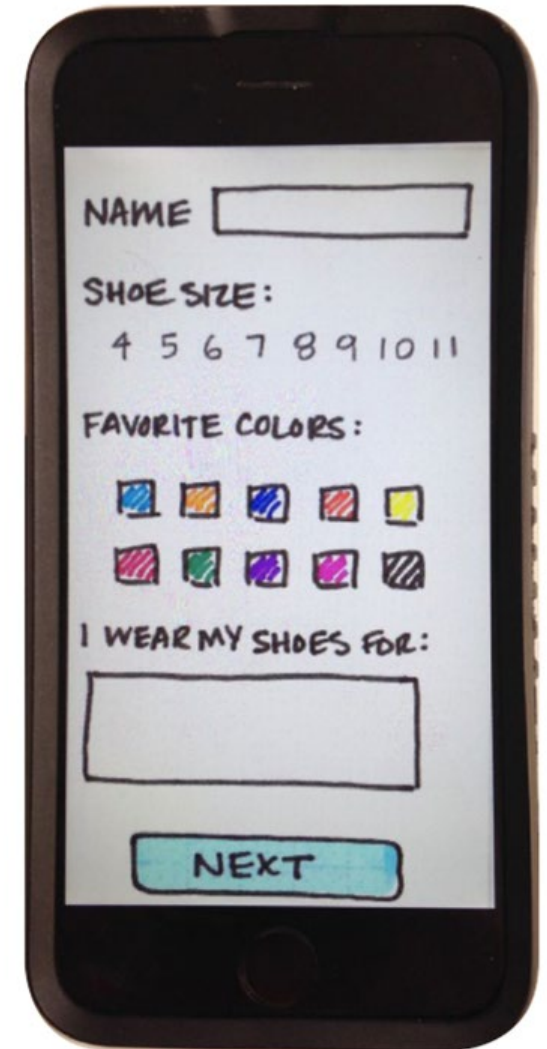 NAME
SHOE SIZE:
4 5 6 7 8 9 10 11
FAVORITE COLORS:
I WEAR MY SHOES FOR:
NEXT